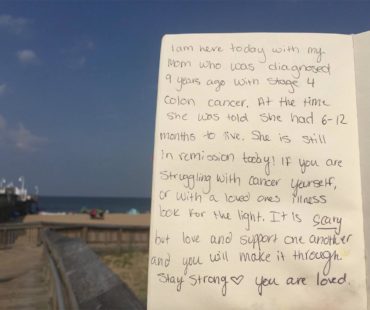 I am here today with my
Mom who was diagnosed
9 years ago with Stage 4
Colon cancer. At the time
she was told she had 6-12
months to live. She is still
in remission today! If you are
struggling with cancer yourself,
or with a loved ones illness
look for the light. It is scary
but love and support one another
and you will make it through
Stay Strong♡ you are loved.